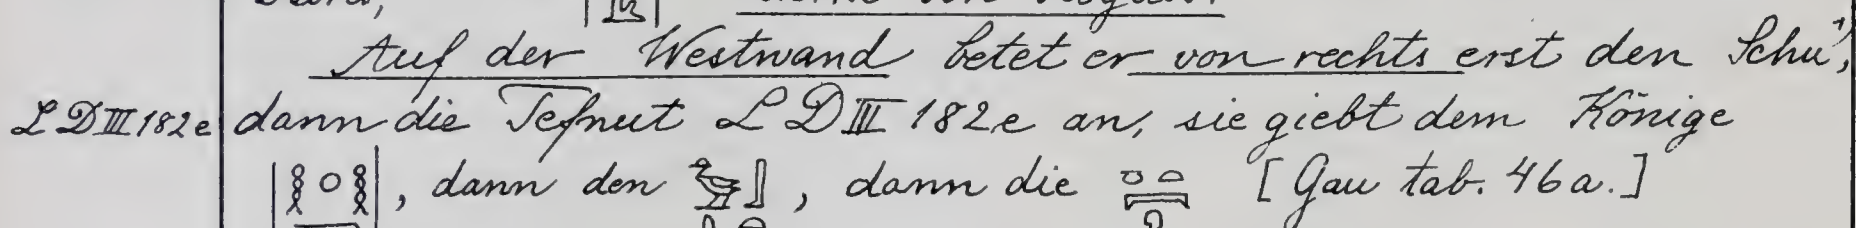 Auf der Westwand betet er von rechts erst den Schu,
LDIII 182e dann die Tefnut LDIII 182e an, sie giebt dem Könige
𓎛𓇳𓎛, dann den 𓅬𓃀, dann die [Gau tab. 46a.]